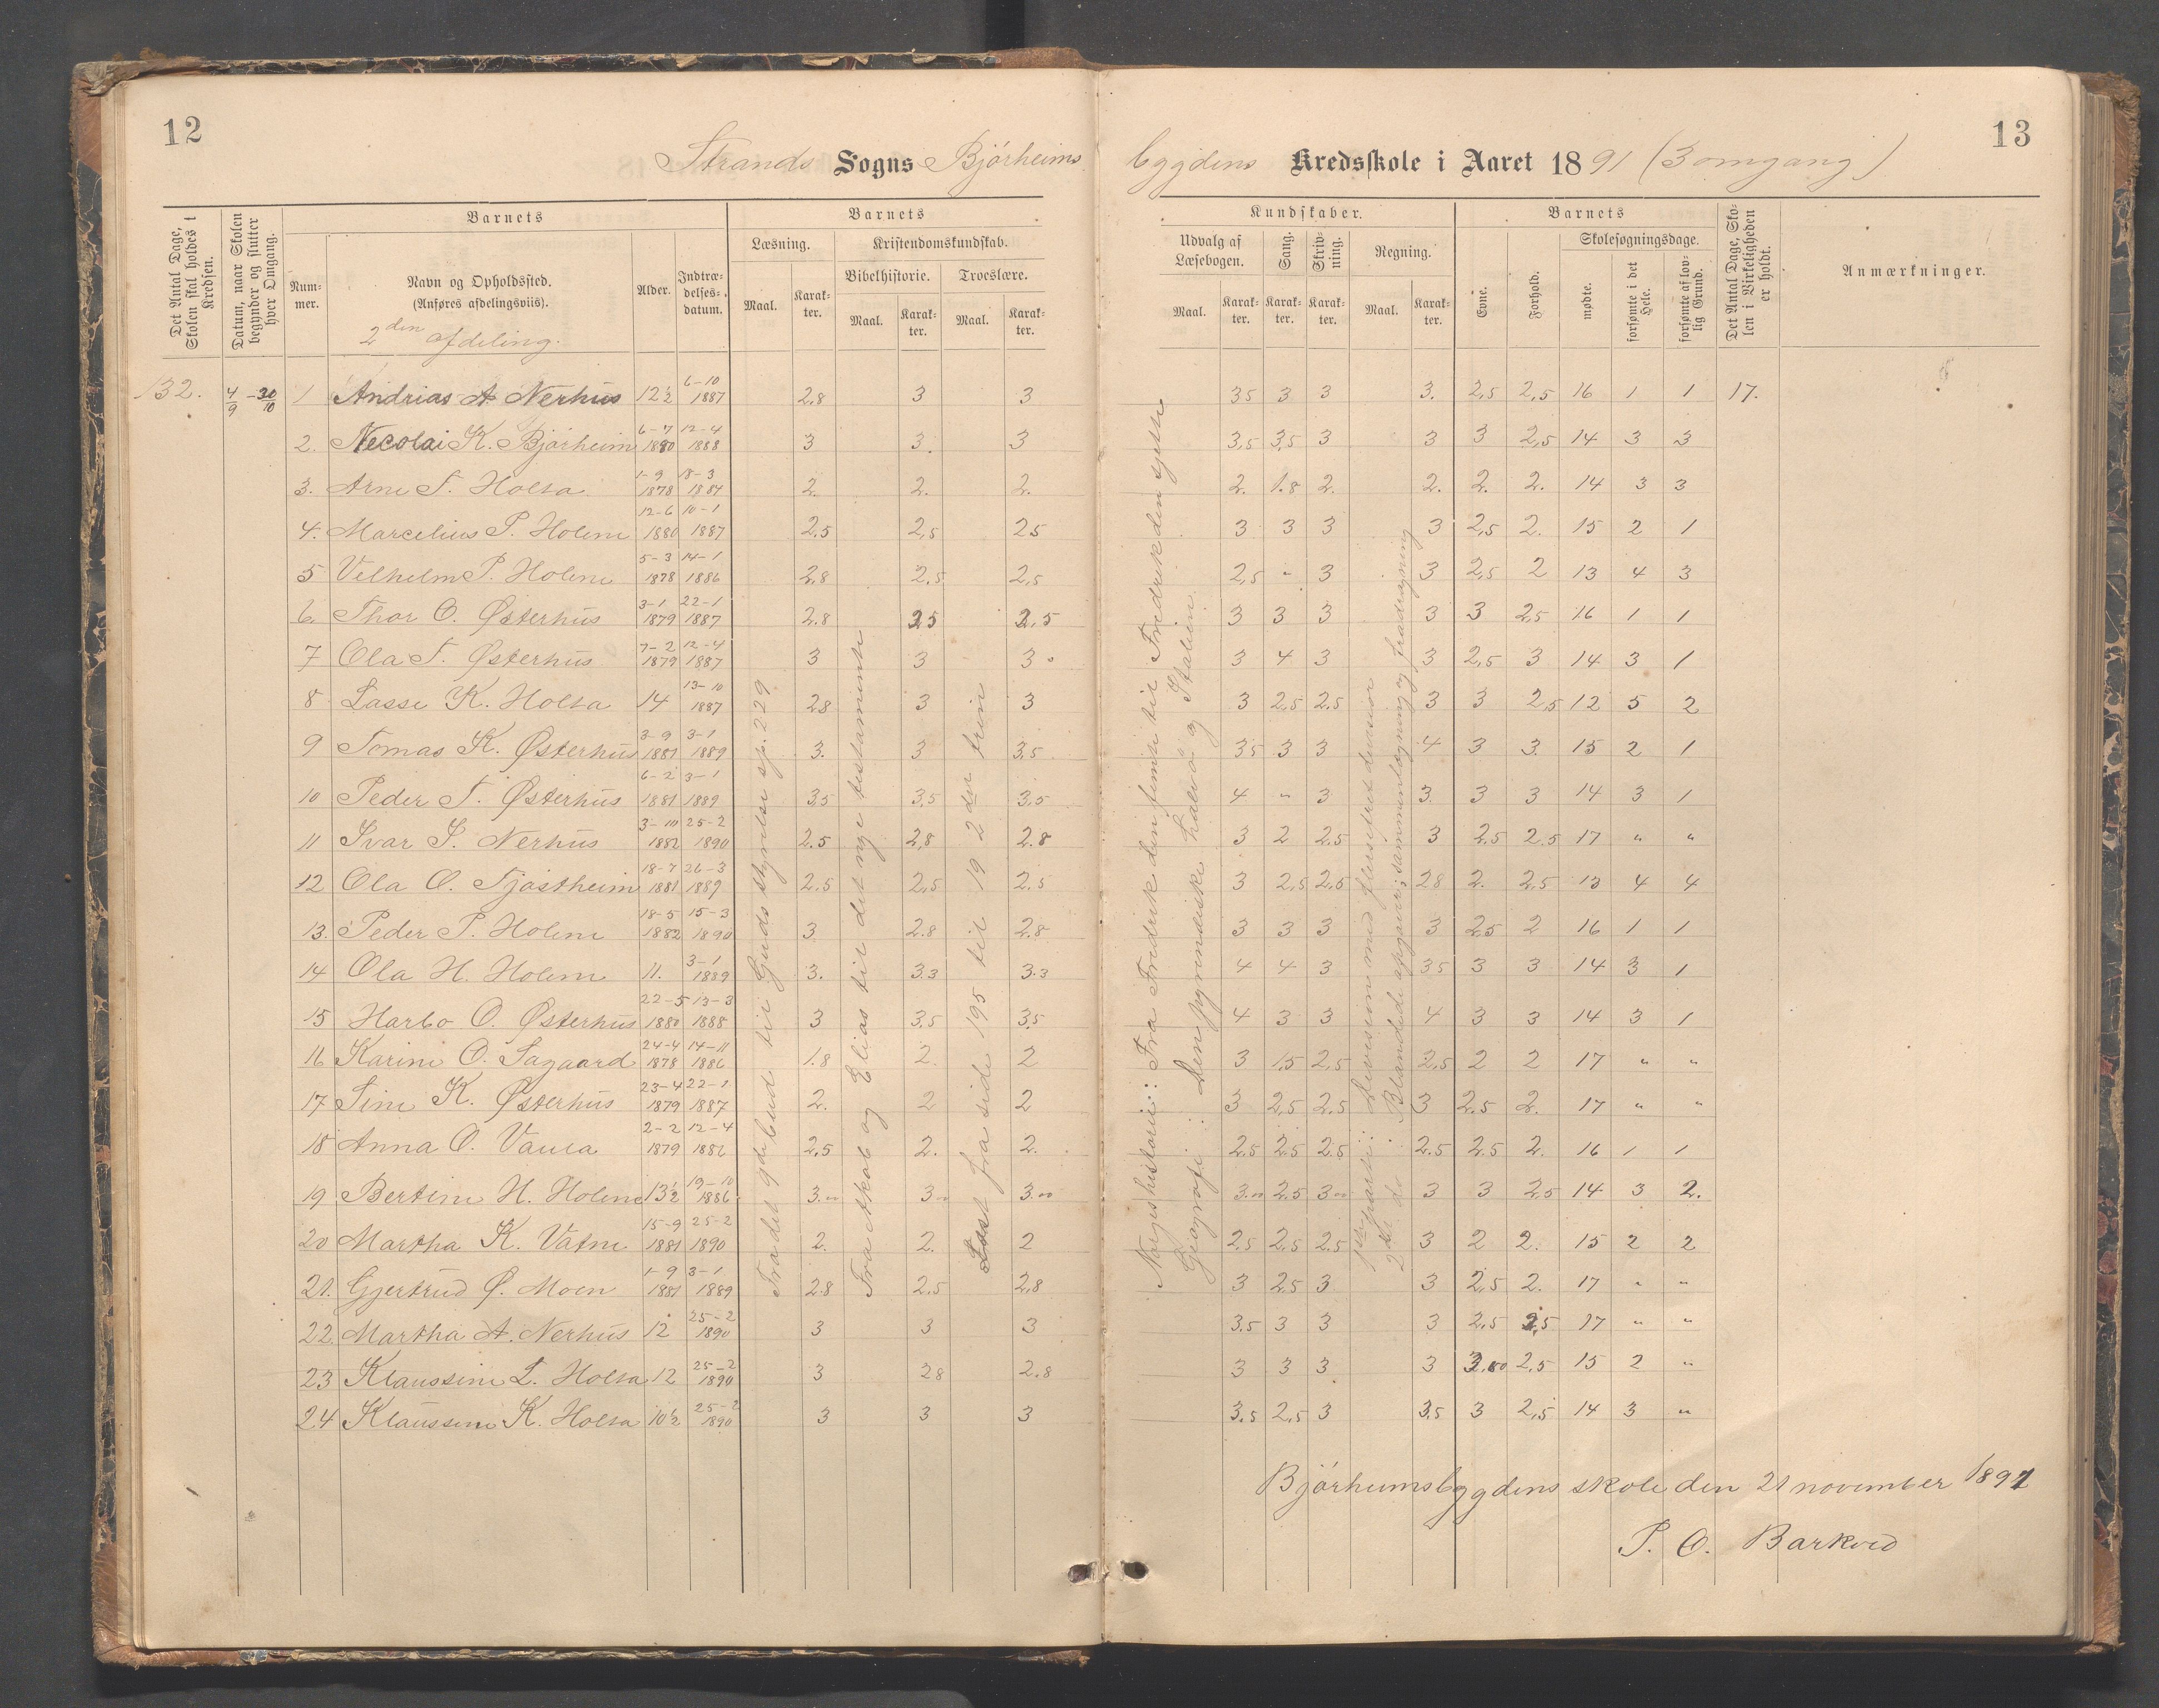 12
13
Strands Sogns Bjórheims
bygdens Kredsskole i Aaret 1891 (3 omgang)
Det Antal Dage, Skolen skal holdes i Kredsen.
Datum, naar Skolen begynder og slutter hver Omgang.
Barnets
Nummer.
Navn og Opholdssted.
(Anføres afdelingsviis).
2den afdeling.
Alder.
Indtrædelsesdatum.
Barnets
Læsning.
Maal. Karakter.
Kristendomskundskab.
Bibelhistorie.
Maal. Karakter.
Troeslære.
Maal. Karakter.
Kundskaber.
Udvalg af Læsebogen.
Maal. Karakter.
Sang.
Karakter.
Skrivning.
Karakter.
Regning.
Maal. Karakter.
Barnets
Evne.
Forhold.
Skolesøgningsdage.
mødte.
forsømte i det Hele.
forsømte af lovlig Grund.
Det Antal Dage, Skolen i Virkeligheden er holdt.
Anmærkninger.
132. 4/9 - 30/10 1 Andrias A. Nerhus 12½ 6-10 1887 2.8 3 3 35 3 3 3. 2,5 2,5 16 1 1 17.
2. Necolai K. Bjórheim 6-7 1880 12-4 1888 3 3. 3 3,5 3,5 3 3 3 2,5 14 3 3
3. Arne T. Holta 1-9 1878 18-3 1884 2. 2. 2. 2. 1.8 2. 2. 2. 2. 14 3 3
4. Marcelius P. Holene 12-6 1880 10-1 1887 2,5 2,5 25 3 3 3 3 2,5 2. 15 2 1
5 Velhelm P. Holene 5-3 1878 14-1 1886 2,8 2,5 2,5 2,5 " 3 3 2,5 2 13 4 3
6. Thor O. Østerhus 3-1 1879 22-1 1887 2.8 25 2,5 3 3 3 3 3 25 16 1 1
7 Ola T. Østerhus 7-2 1879 12-4 1887 3 3 3 3 4 3 3 2,5 3 14 3 1
8 Lasse K. Holta 14 13-10 1887 28 3 3 3 2,5 2.5 3 3 2,5 12 5 2
9 Tomas K. Østerhus 3-9 1881 3-1 1889 3. 3 3,5 35 3 3 4 3 3. 15 2 1
10 Peder T. Østerhus 6-2 1881 3-1 1889 35 3,5 3,5 4 " 3 3. 3 3 14 3 1
11 Ivar S. Nerhus 3-10 1882 25-2 1890 2.5 2,8 2.8 3 2 2.5 3 2,5 2.5 17 " "
12 Ola O. Tjóstheim 18-7 1881 26-3 1889 2.5 2,5 2.5 3 2,5 2,5 28 2. 2,5 13 4 4
13. Peder P. Holene 18-5 1882 15-3 1890 3 2.8 2.8 3 3 3 3 2,5 2 16 1 1
14 Ola H. Holene 11. 3-1 1889 3. 3.3 3.3 4 4 3 35 3 3 14 3 1
15 Harbo O. Østerhus 22-5 1880 13-3 1888 3 3,5 3,5 4 3 3 4 3 3 14 3 1
16 Karine O. Sagaard 24-4 1878 14-11 1886 1.8 2. 2 3 1,5 2,5 2,5 2 2 17 " "
17 Sine K. Østerhus 23-4 1879 22-1 1887 2. 2 2 3 2,5 2.5 3 2.5 2. 17 " "
18 Anna O. Vaula 2-2 1879 12-4 1886 2,5 2. 2. 2.5 2.5 2.5 2.5 2.5 2. 16 1 1
19 Bertine H. Holene 13½ 19-10 1886 3.00 3.00 3.00 3.00 2.5 3.00 3 3 2,5 14 3 2.
20 Martha K. Vatne 15-9 1881 25-2 1890 2. 2. 2 2,5 2.5 2.5 3 2 2. 15 2 2
21. Gjertrud Ø. Moen 1-9 1881 3-1 1889 2.8 2.5 2,8 3 25 3 3 2,5 2. 17 " "
22 Martha A. Nerhus 12 25-2 1890 3 3 3 3.5 3 3 3 2.5 2,5 17 " "
23 Klaussine L. Holta 12 25-2 1890 3 28 2.8 3 3 3 3 3.00 2,5 15 2 "
24 Klaussine K. Holta 10½ 25-2 1890 3 3 3 3.5 2,5 3 3.5 3 2,5 14 3 "
Fra det 9de bud til Guds styrelse sp. 229
Fra Akab og Elias til det nye testamente
Læst fra side 195 til 19 2der trin
Norges historie: Fra Fredrik den femte til Fredrik den sjette
Geografi: Den pyrenæiske halvö og Italien.
1ste parti: Division med flersifret divisor
2det do. Blandede opgaver; sammenlægning og fradragning
Bjórheimsbygdens skole den 21 november 1891
P. O. Barkved